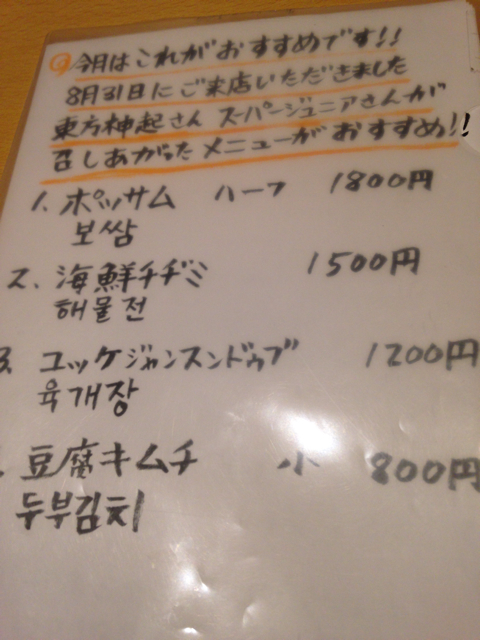 今月はこれがおすすめです!!
8月31日にご来店いただきました
東方神起さん スーパージュニアさんが
召しあがった メニューがおすすめ!!
1. ポッサム ハーフ 1800円
보쌈
2. 海鮮チヂミ 1500円
해물전
3. ユッケジャンスンドゥブ 1200円
육개장
豆腐キムチ 小 800円
두부김치